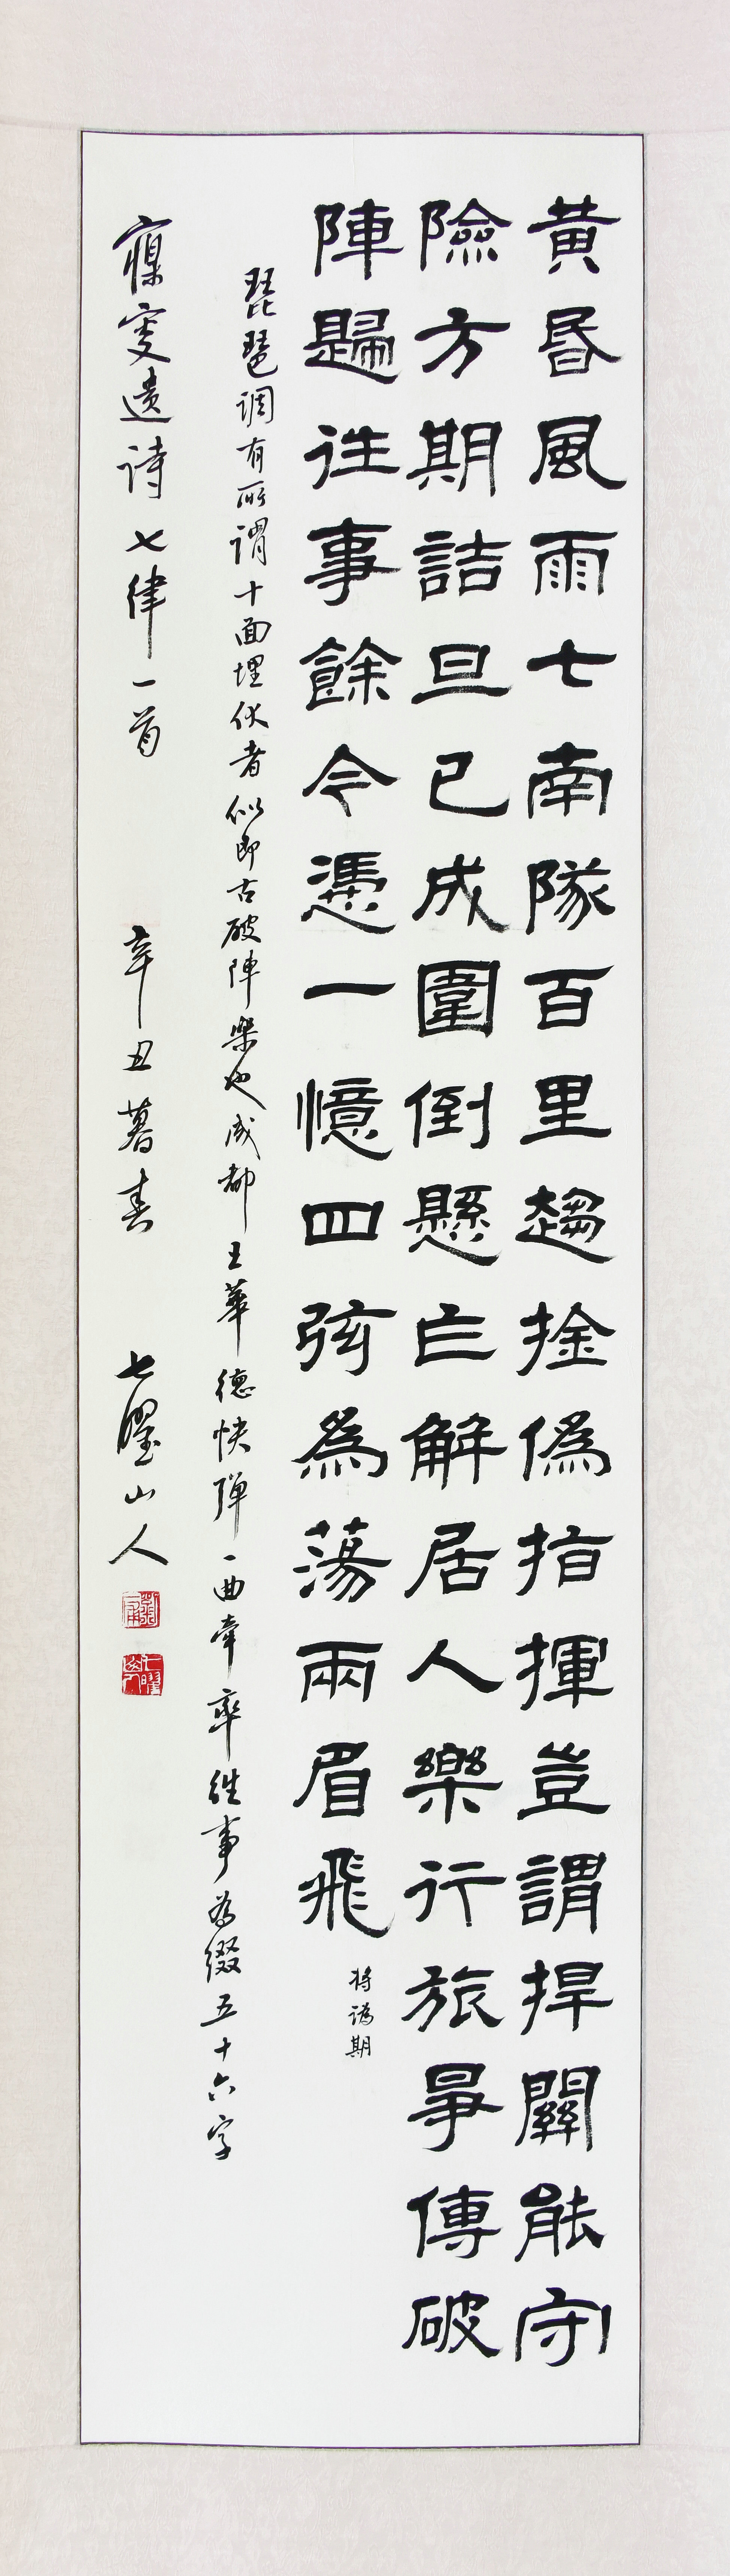 黄昏風雨七南隊百里趨捦偽指揮豈謂捍關能守
險方期詰旦已成圍倒懸亡解居人樂行旅爭傳破
陣歸往事餘今憑一憶四弦為蕩兩眉飛
将譌期
琵琶調有所謂十面埋伏者似即古破陣樂也成都王華德快弹一曲牽率往事为缀五十六字
叟遗诗七律一首 辛丑暮春 七曜山人